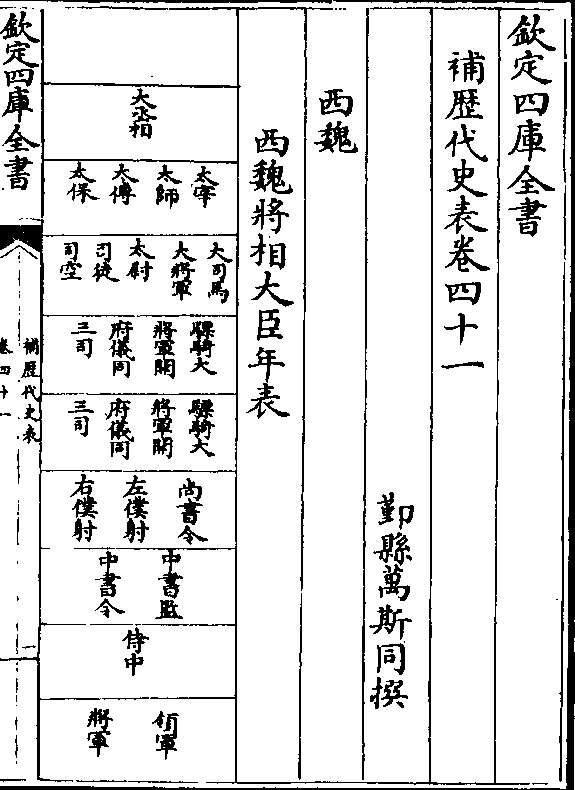 欽定四庫全書
補歴代史表卷四十一
鄞縣萬斯同撰
西魏
西魏將相大臣年表
大丞相
太宰
太師
太傅
太保
大司馬
大將軍
太尉
司徒
司空
驃騎大
將軍開
府儀同
三司
驃騎大
將軍開
府儀同
三司
尚書令
左僕射
右僕射
中書監
中書令
侍中
領軍
將軍
欽定四庫全書
補歴代史表
卷四十一
一